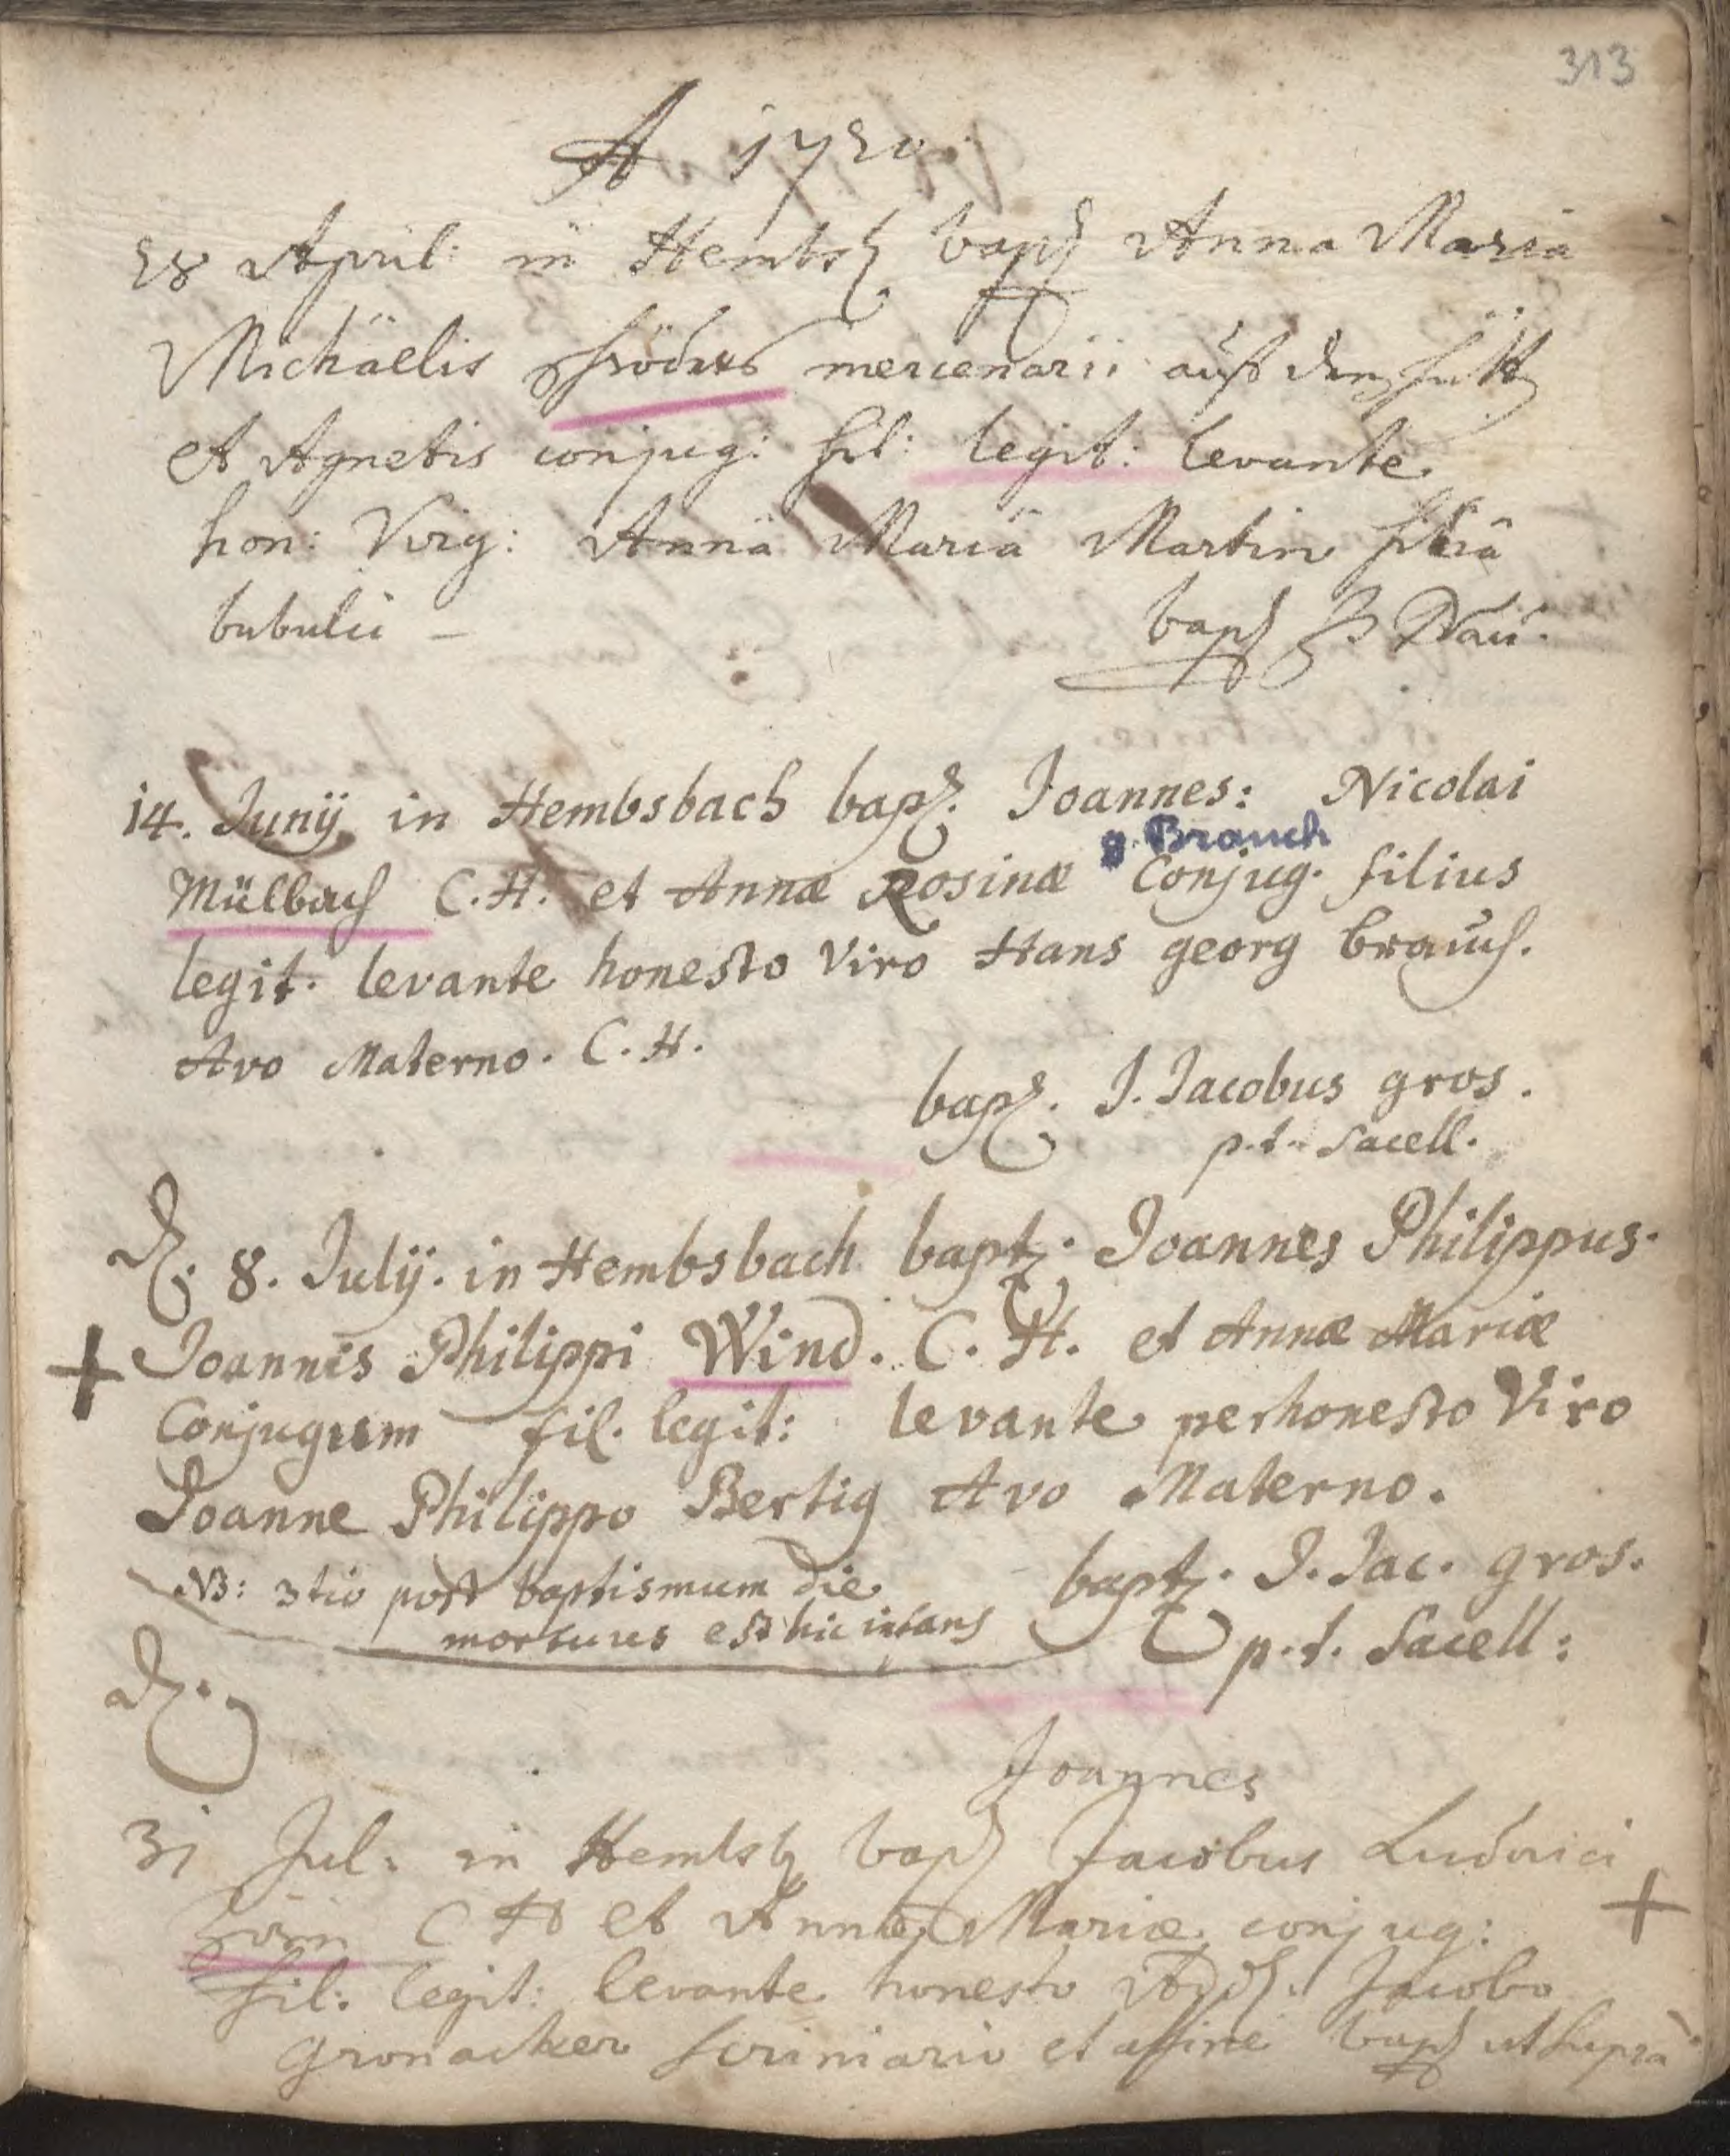 313
A 1720.
28 April: in Hembsb bapt Anna Maria
Michäelis mercenarii auff den hütt
et Agnetis conjug: fil: legit: levante
hon: Virg: Annâ Mariâ Martin filiâ
bubulci –
bapt
14. Junÿ in Hembsbach bapt. Joannes: Nicolai
g. Brauch
Mülbach C.H. et Annæ Rosinæ Conjug. filius
legit. levante honesto Viro Hans georg brauch.
Avo Materno. C.H.
bapt. J. Jacobus gros.
p.t. Sacell.
D. 8. Julÿ. in Hembsbach baptz. Joannes Philippus.
+ Joannis Philippi Wind. C. H. et Annæ Mariæ
Conjugum fil. legit: levante perhonesto Viro
Joanne Philippo Bertig Avo Materno.
NB: 3tio post baptismum die
mortuus est hic infans
baptz. J. Jac. gros.
p.t. Sacell:
D.
Joannes
31 Jul: in Hembsb bapt Jacobus Ludovici
+
C H et Annæ Mariæ conjug:
fil: legit: levante honesto Jacobo
Gronacker scriniario et affine bapt ut supra